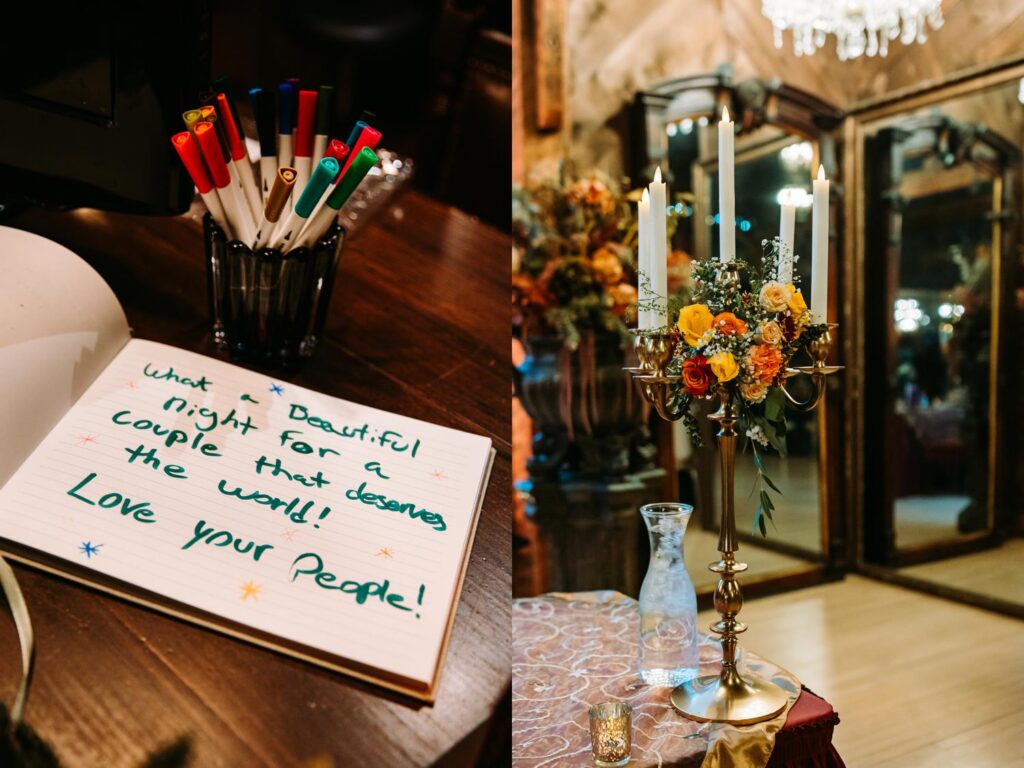 What a Beautiful
night for a
couple that deserves
the world!
Love your People!